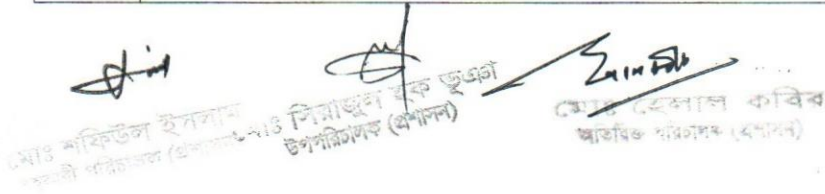 মোঃ শফিউল ইসলাম
সহকারী পরিচালক (প্রশাসন)
মোঃ সিরাজুল হক ভূঞা
উপপরিচালক (প্রশাসন)
মোঃ হেলাল কবির
অতিরিক্ত পরিচালক (প্রশাসন)